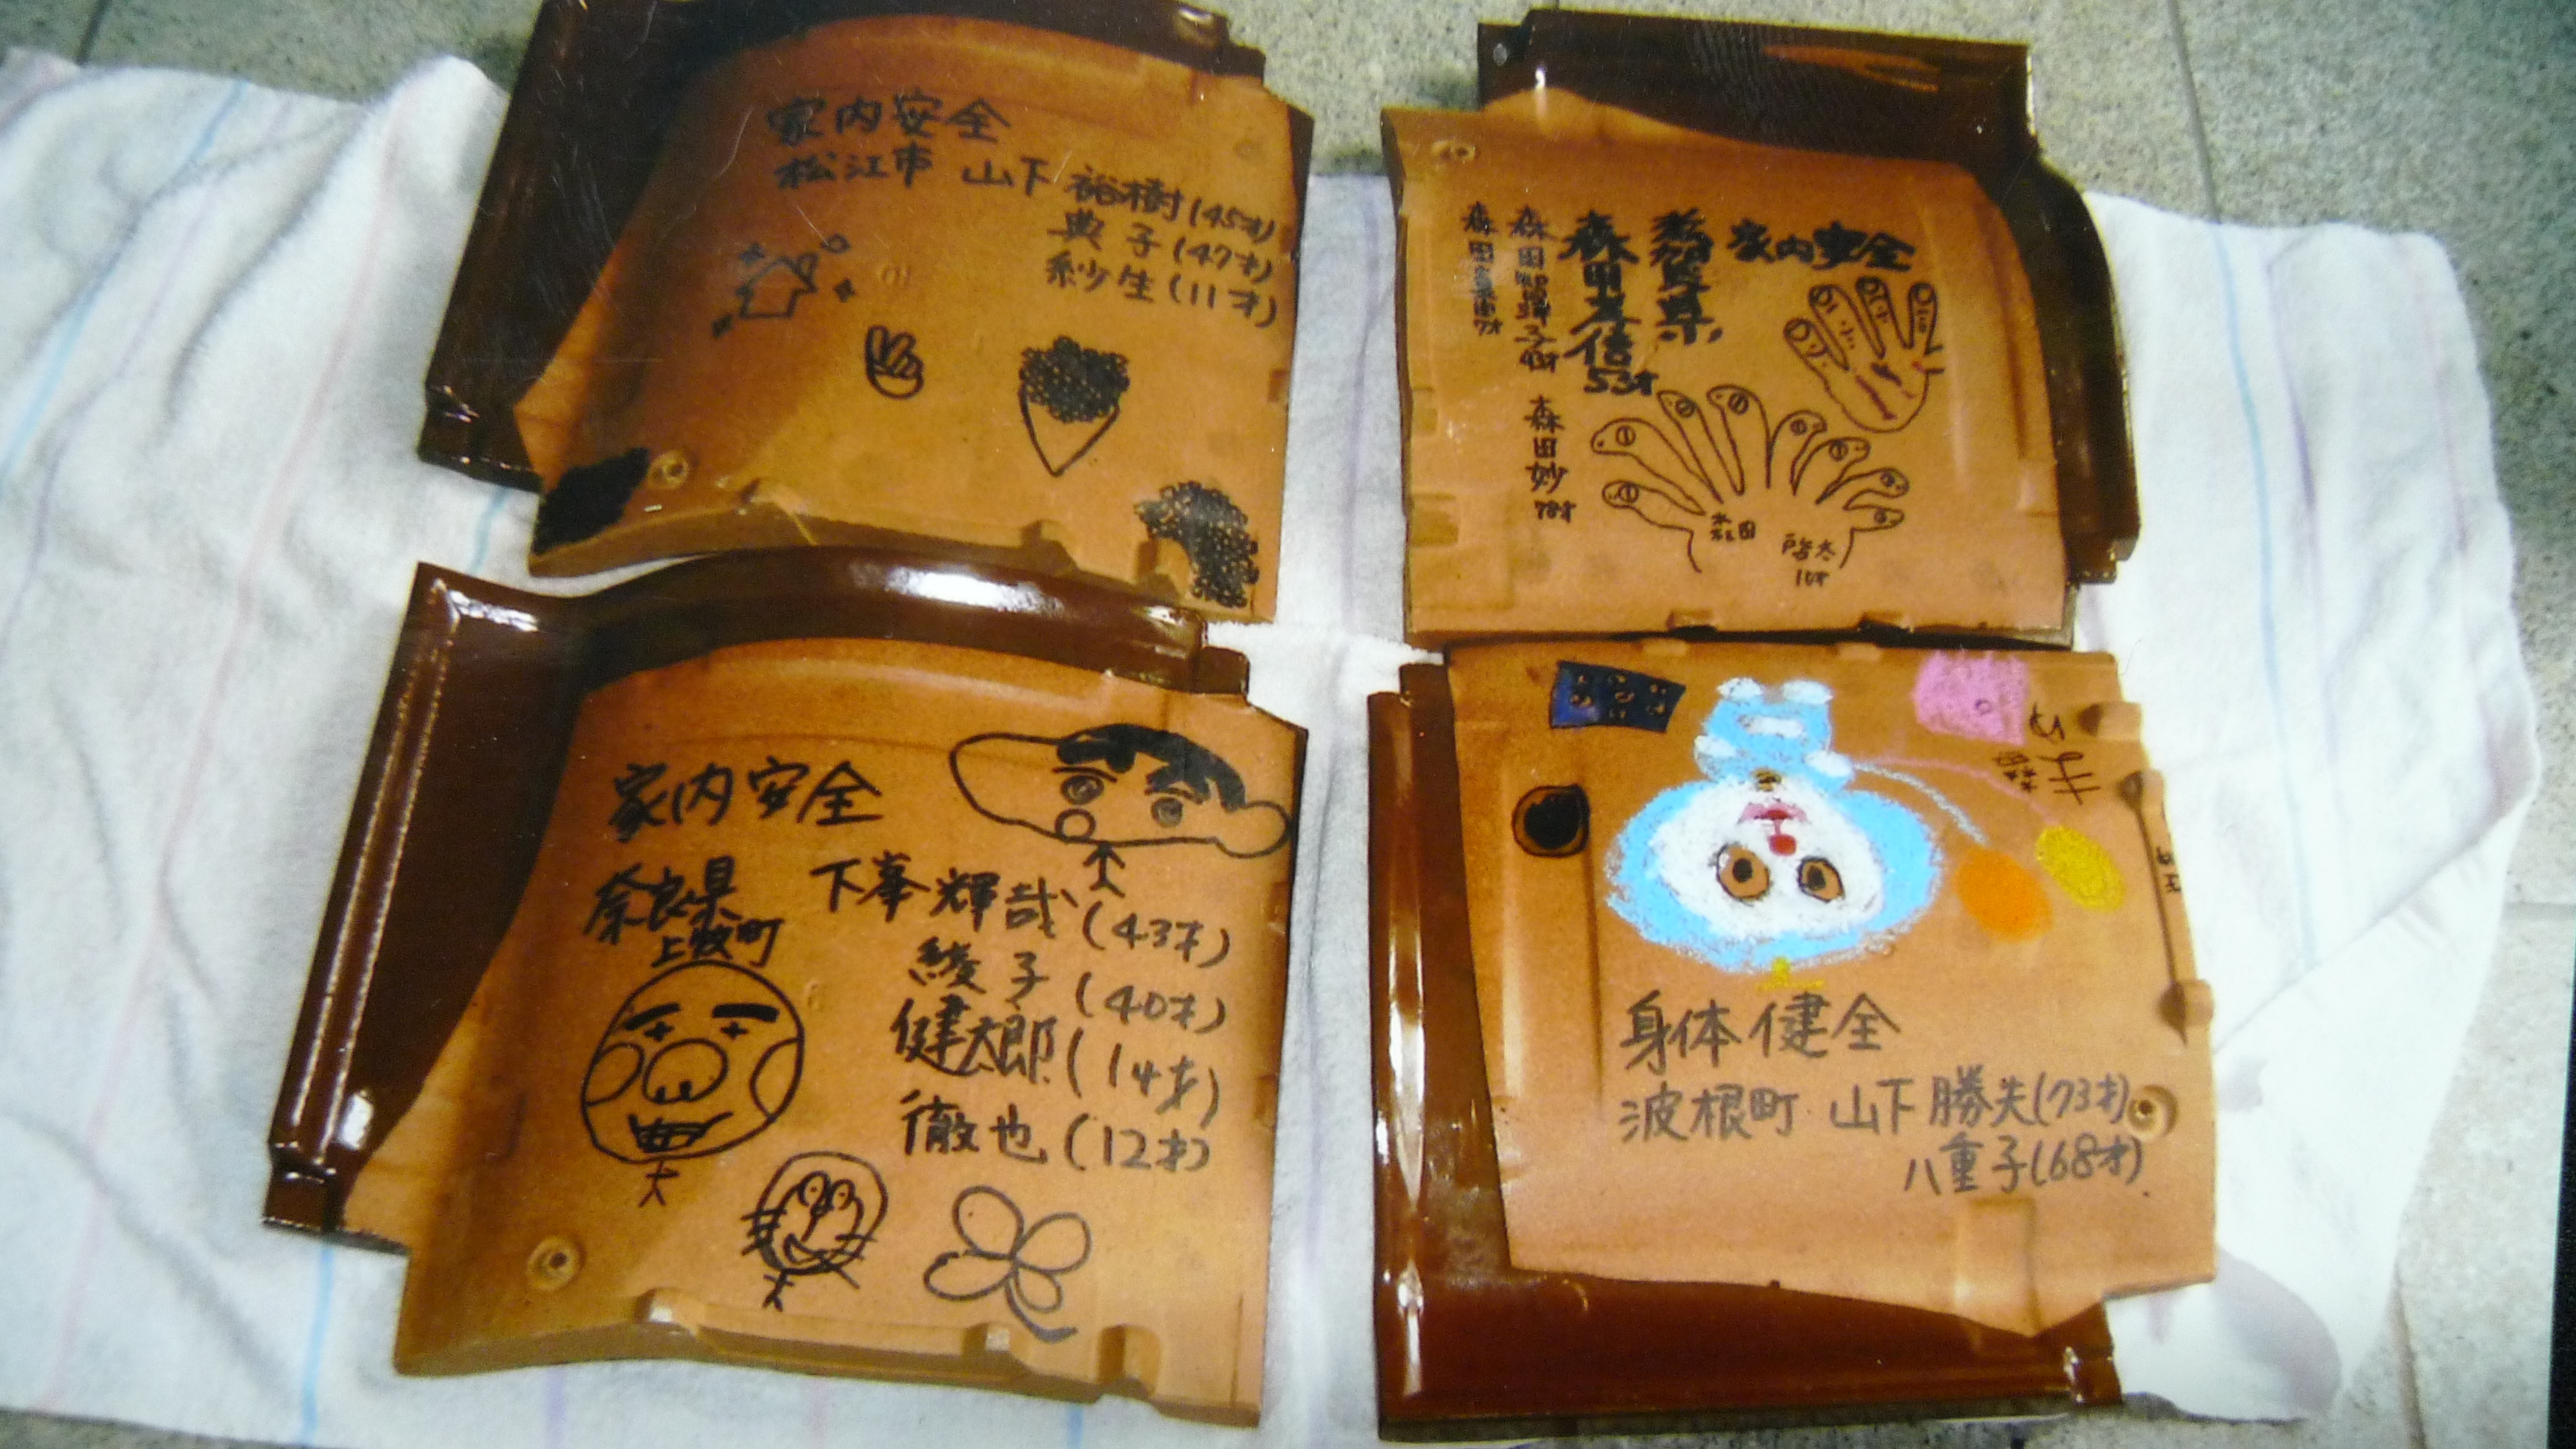 家内安全
松江市 山下 裕樹(45才)
典子(47才)
紗生(11才)
家内安全
奈良県
森田
53才
森田
43才
森田
7才
森田妙
78才
森田
啓太
10才
家内安全
奈良県
上牧町
下峯 輝哉(43才)
綾子(40才)
健太郎(14才)
徹也(12才)
身体健全
波根町 山下 勝夫(73才)
八重子(68才)